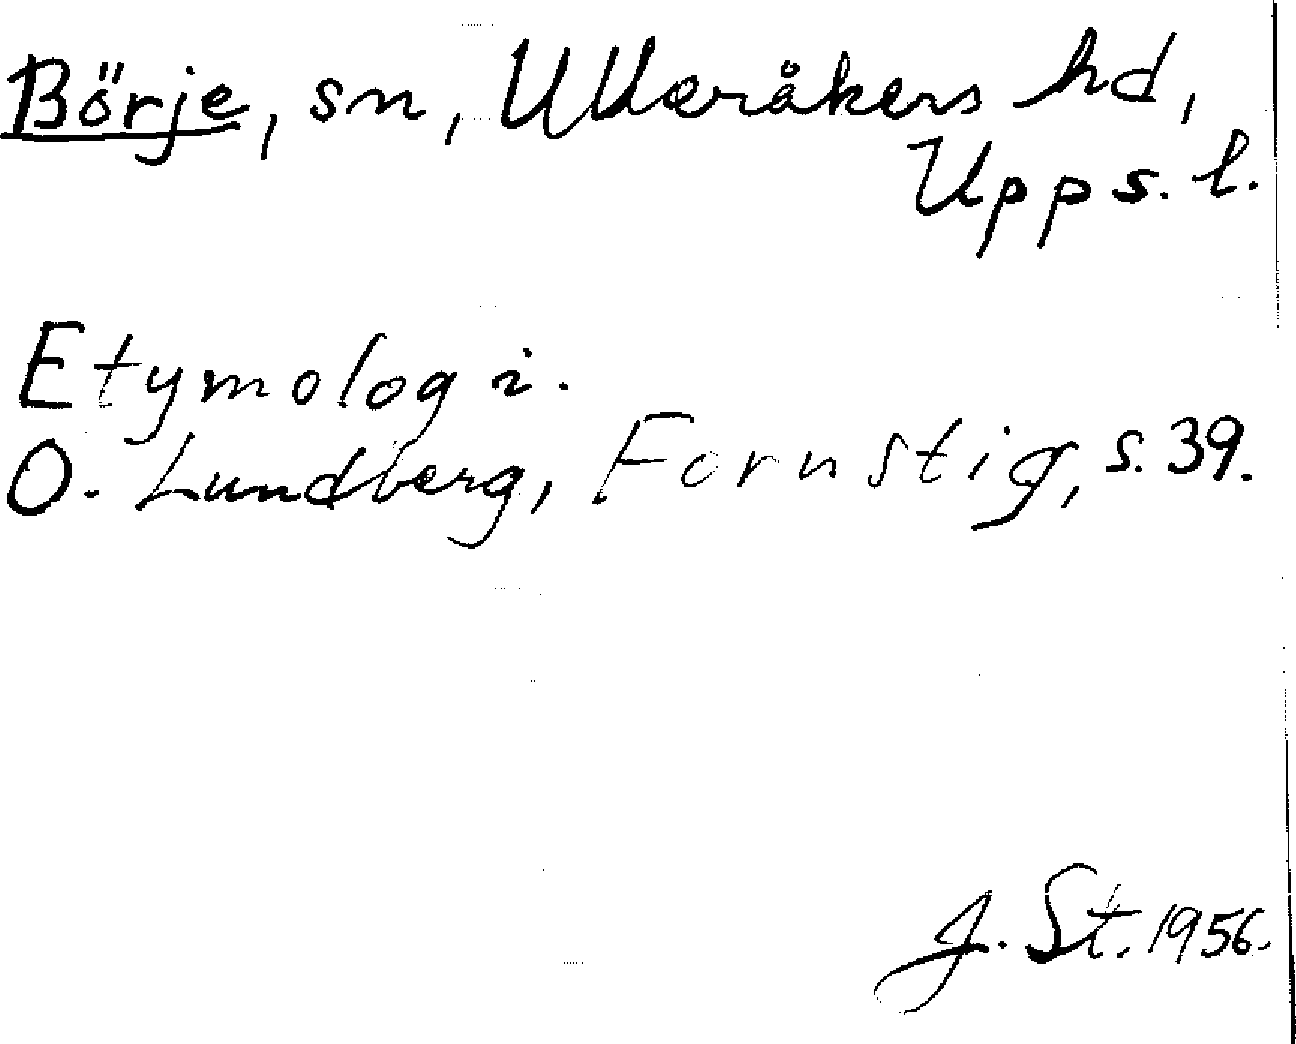 Börje, sn, Ulleråkers hd,
Upps. l.
Etymologi.
O. Lundberg, Fornstig, s. 39.
J. St. 1956.